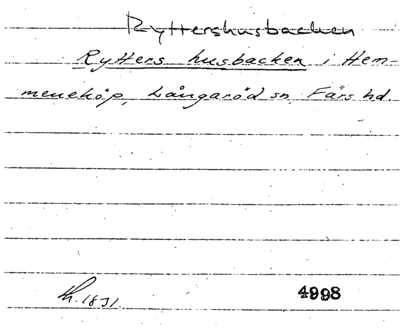 Ryttershusbacken
Rytters husbacken i Hem-
meneköp, Långaröd sn Färs hd.
h. 1831. 4998